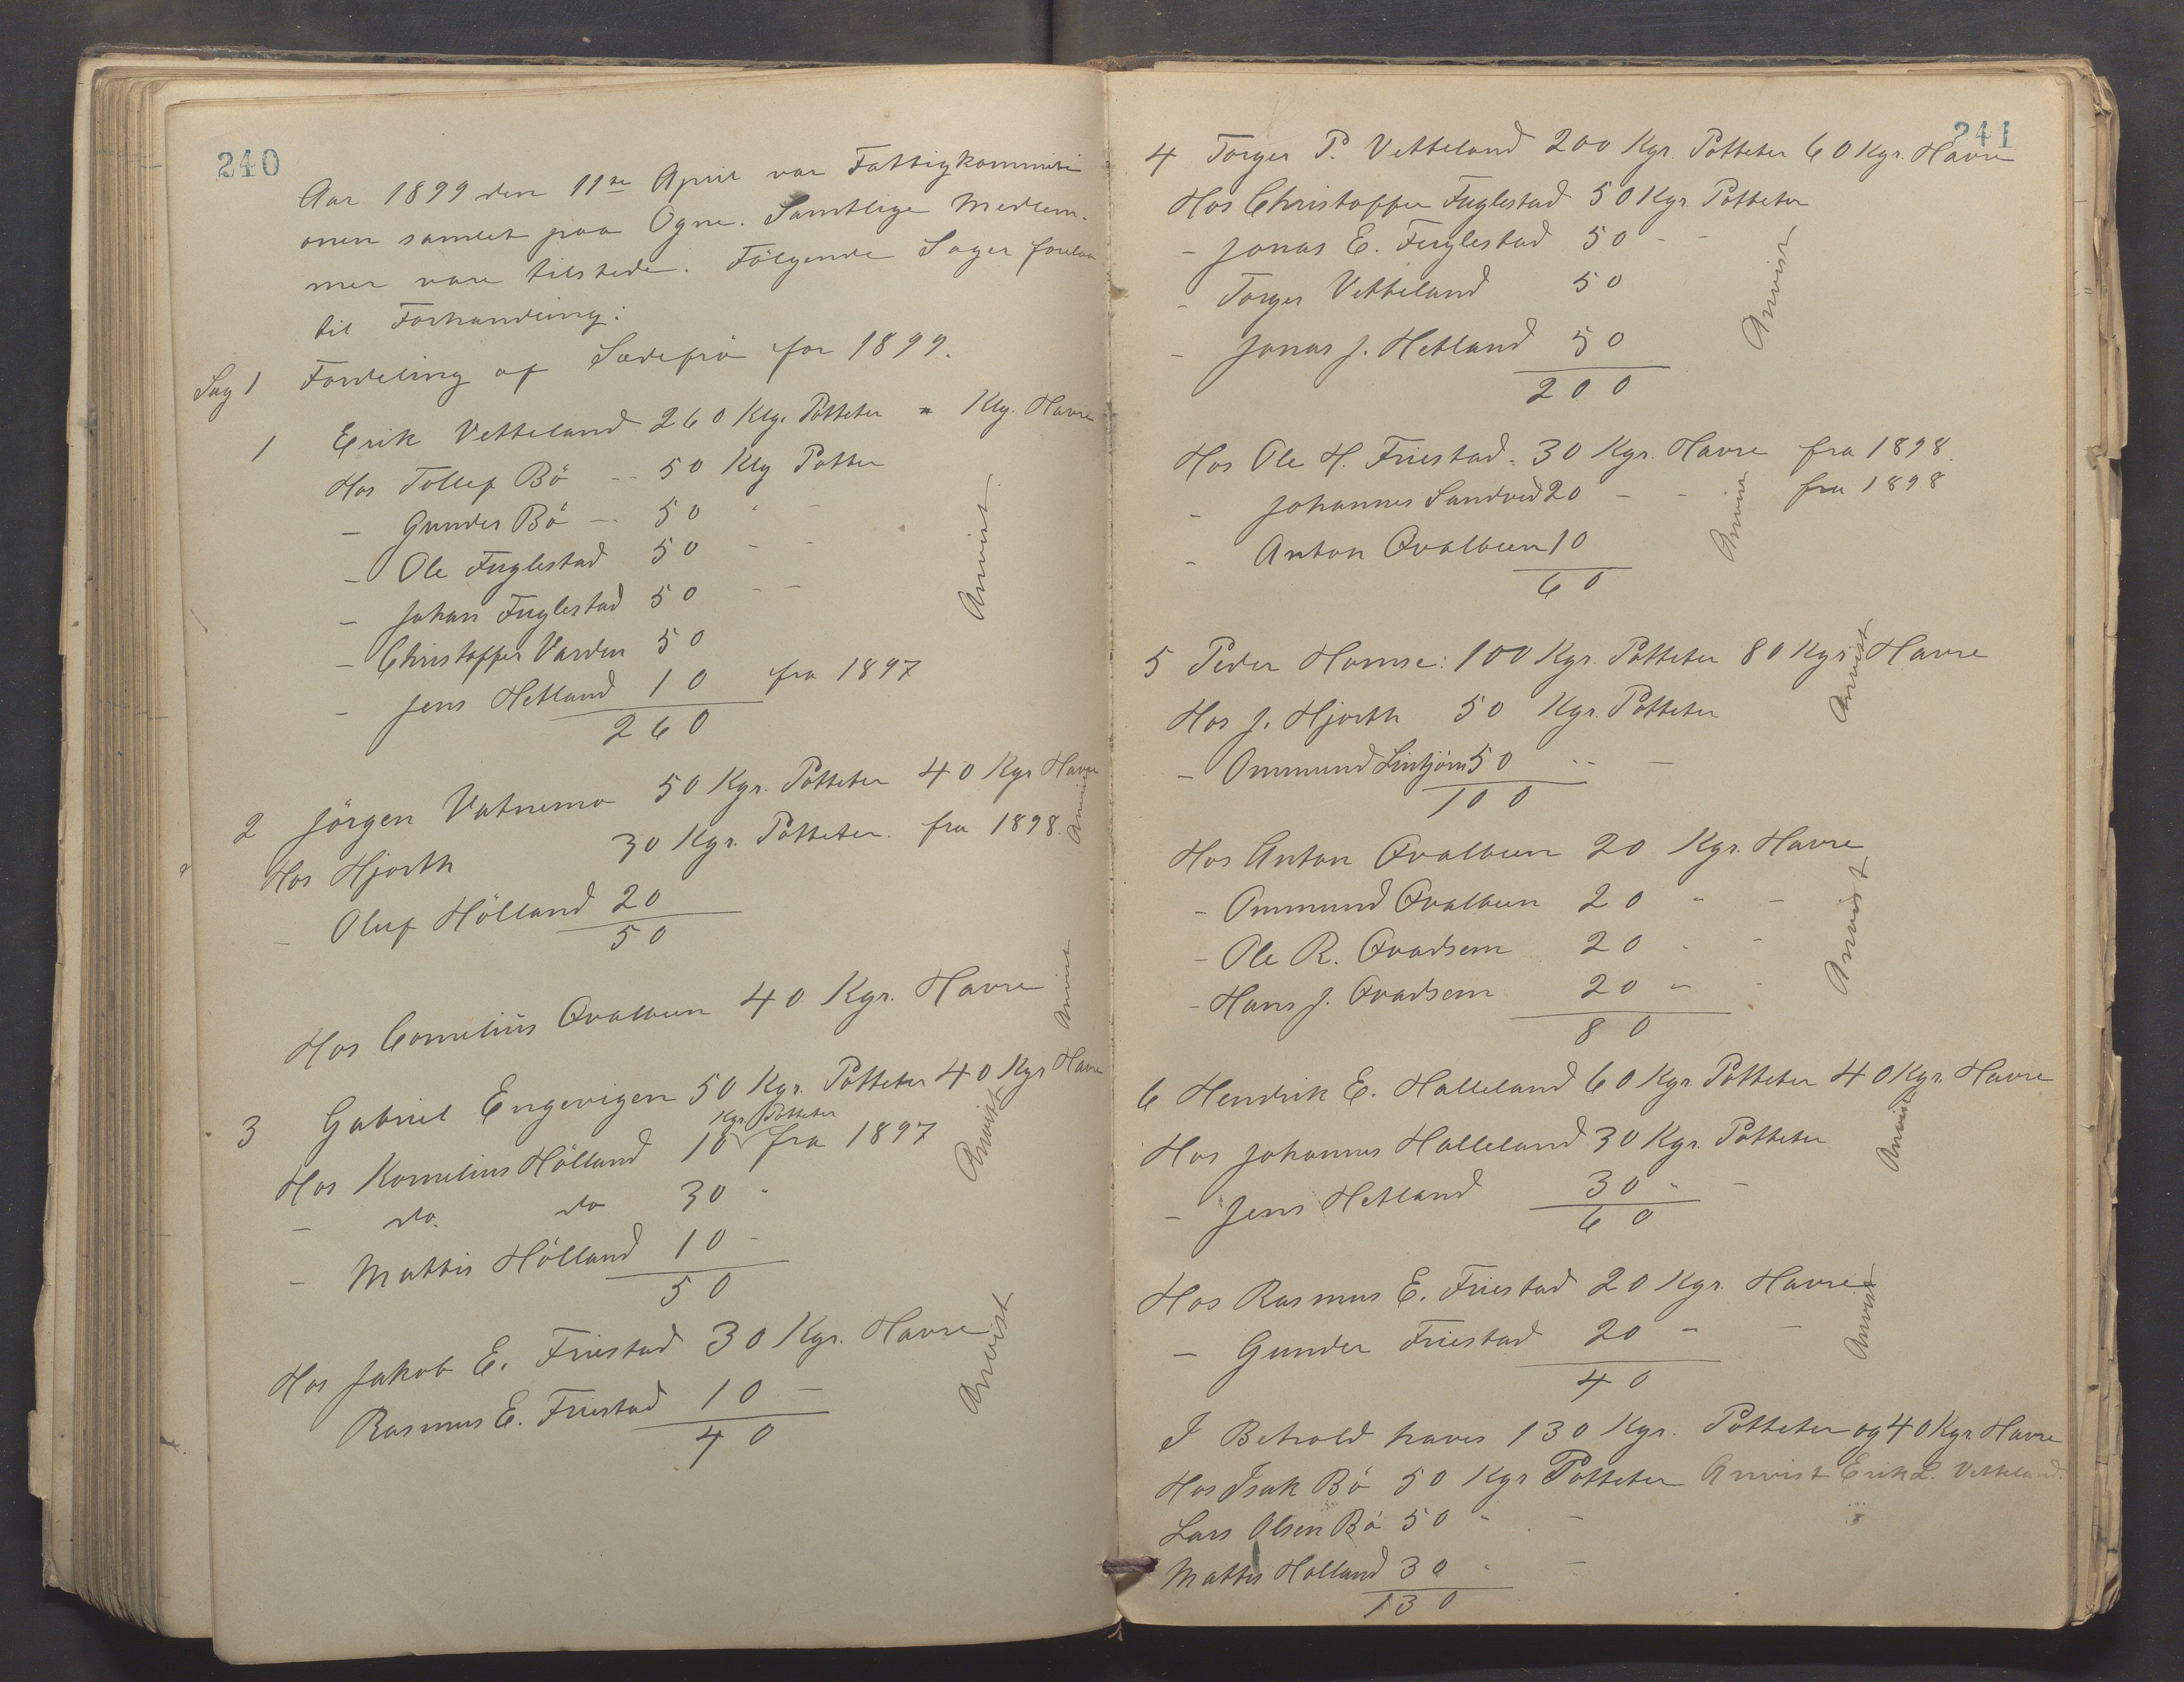 240
Aar 1899 den 11te April var Fattigkommisi
onen samlet paa Ogne. Samtlige Medlem-
mer vare tilstede. Fölgende Sager forelaa
til Forhandling:
Sag 1 Fordeling af Sædefrö for 1899.
1 Erik Vetteland 260 Klg. Potteter " Klg. Havre
Hos Tollef Bö -- 50 Klg Potter
- Gunder Bö -- 50 " -
- Ole Fuglestad 50 - -
- Johan Fuglestad 50 - -
- Christoffer Varden 50
- Jens Hetland 10 fra 1897
260
Anvist
2 Jörgen Vatnemo 50 Kgr. Potteter 40 Kgr Havre
Hos Hjorth 30 Kgr. Potteter. fra 1898.
Anvist
- Oluf Hölland 20
50
Hos Cornelius Qvalbein 40 Kgr. Havre
Anvist
3 Gabriel Engevigen 50 Kgr. Potteter 40 Kgr Havre
Kgr. Potteter
Hos Kornelius Hölland 10 fra 1897
- do. do 30 "
- Mattis Hölland 10 -
50
Anvist
Hos Jakob E. Friestad 30 Kgr. Havre
Rasmus E. Friestad 10 -
40
Anvist
241
4 Torger P. Vetteland 200 Kgr. Potteter 60 Kgr. Havre
Hos Christoffer Fuglestad 50 Kgr. Potteter
- Jonas E. Fuglestad 50 - -
- Torger Vetteland 50
- Jonas J. Hetland 50
200
Anvist
Hos Ole H. Friestad. 30 Kgr. Havre fra 1898.
- Johannes Sandved 20 - - fra 1898
- Anton Qvalbein 10
60
Anvist
5 Peder Homse: 100 Kgr. Potteter 80 Kgr. Havre
Hos J. Hjorth 50 Kgr. Potteter
- Ommund Lintjörn 50 -- -
100
Anvist
Hos Anton Qvalbein 20 Kgr. Havre
- Ommund Qvalbein 20 " -
- Ole R. Qvadsem 20 " -
- Hans J. Qvadsem 20 " -
80
Anvist
6 Hendrik E. Halleland 60 Kgr. Potteter 40 Kgr. Havre
Hos Johannes Halleland 30 Kgr. Potteter
- Jens Hetland 30 " -
60
Anvist
Hos Rasmus E. Friestad 20 Kgr. Havre
- Gunder Friestad 20 - -
40
Anvist
I Behold haves 130 Kgr. Potteter og 40 Kgr Havre
Hos Isak Bö 50 Kgr Potteter Anvist Erik L. Vetteland.
Lars Olsen Bö 50 " -
Mattis Hölland 30 " -
130